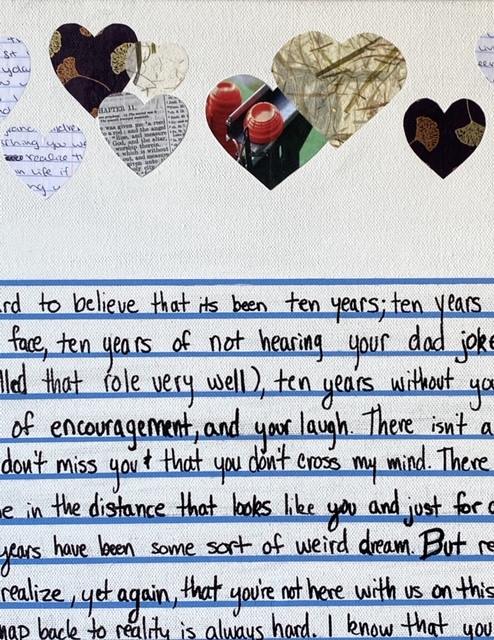 sit
HAPTER II.
was given me a reed
a rod: and the angel
God, and the altar
worship therein.
which is without
out, and measure
given unto
city
realize
in life if
ing u
rd to believe that its been ten years; ten years
face, ten years of not hearing your dad joke
lled that role very well), ten years without yo
of encouragement, and your laugh. There isn't a
don't miss you & that you don't cross my mind. There
e in the distance that looks like you and just for a
years have been some sort of weird dream. But re
realize, yet again, that you're not here with us on this
nap back to reality is always hard. I know that you